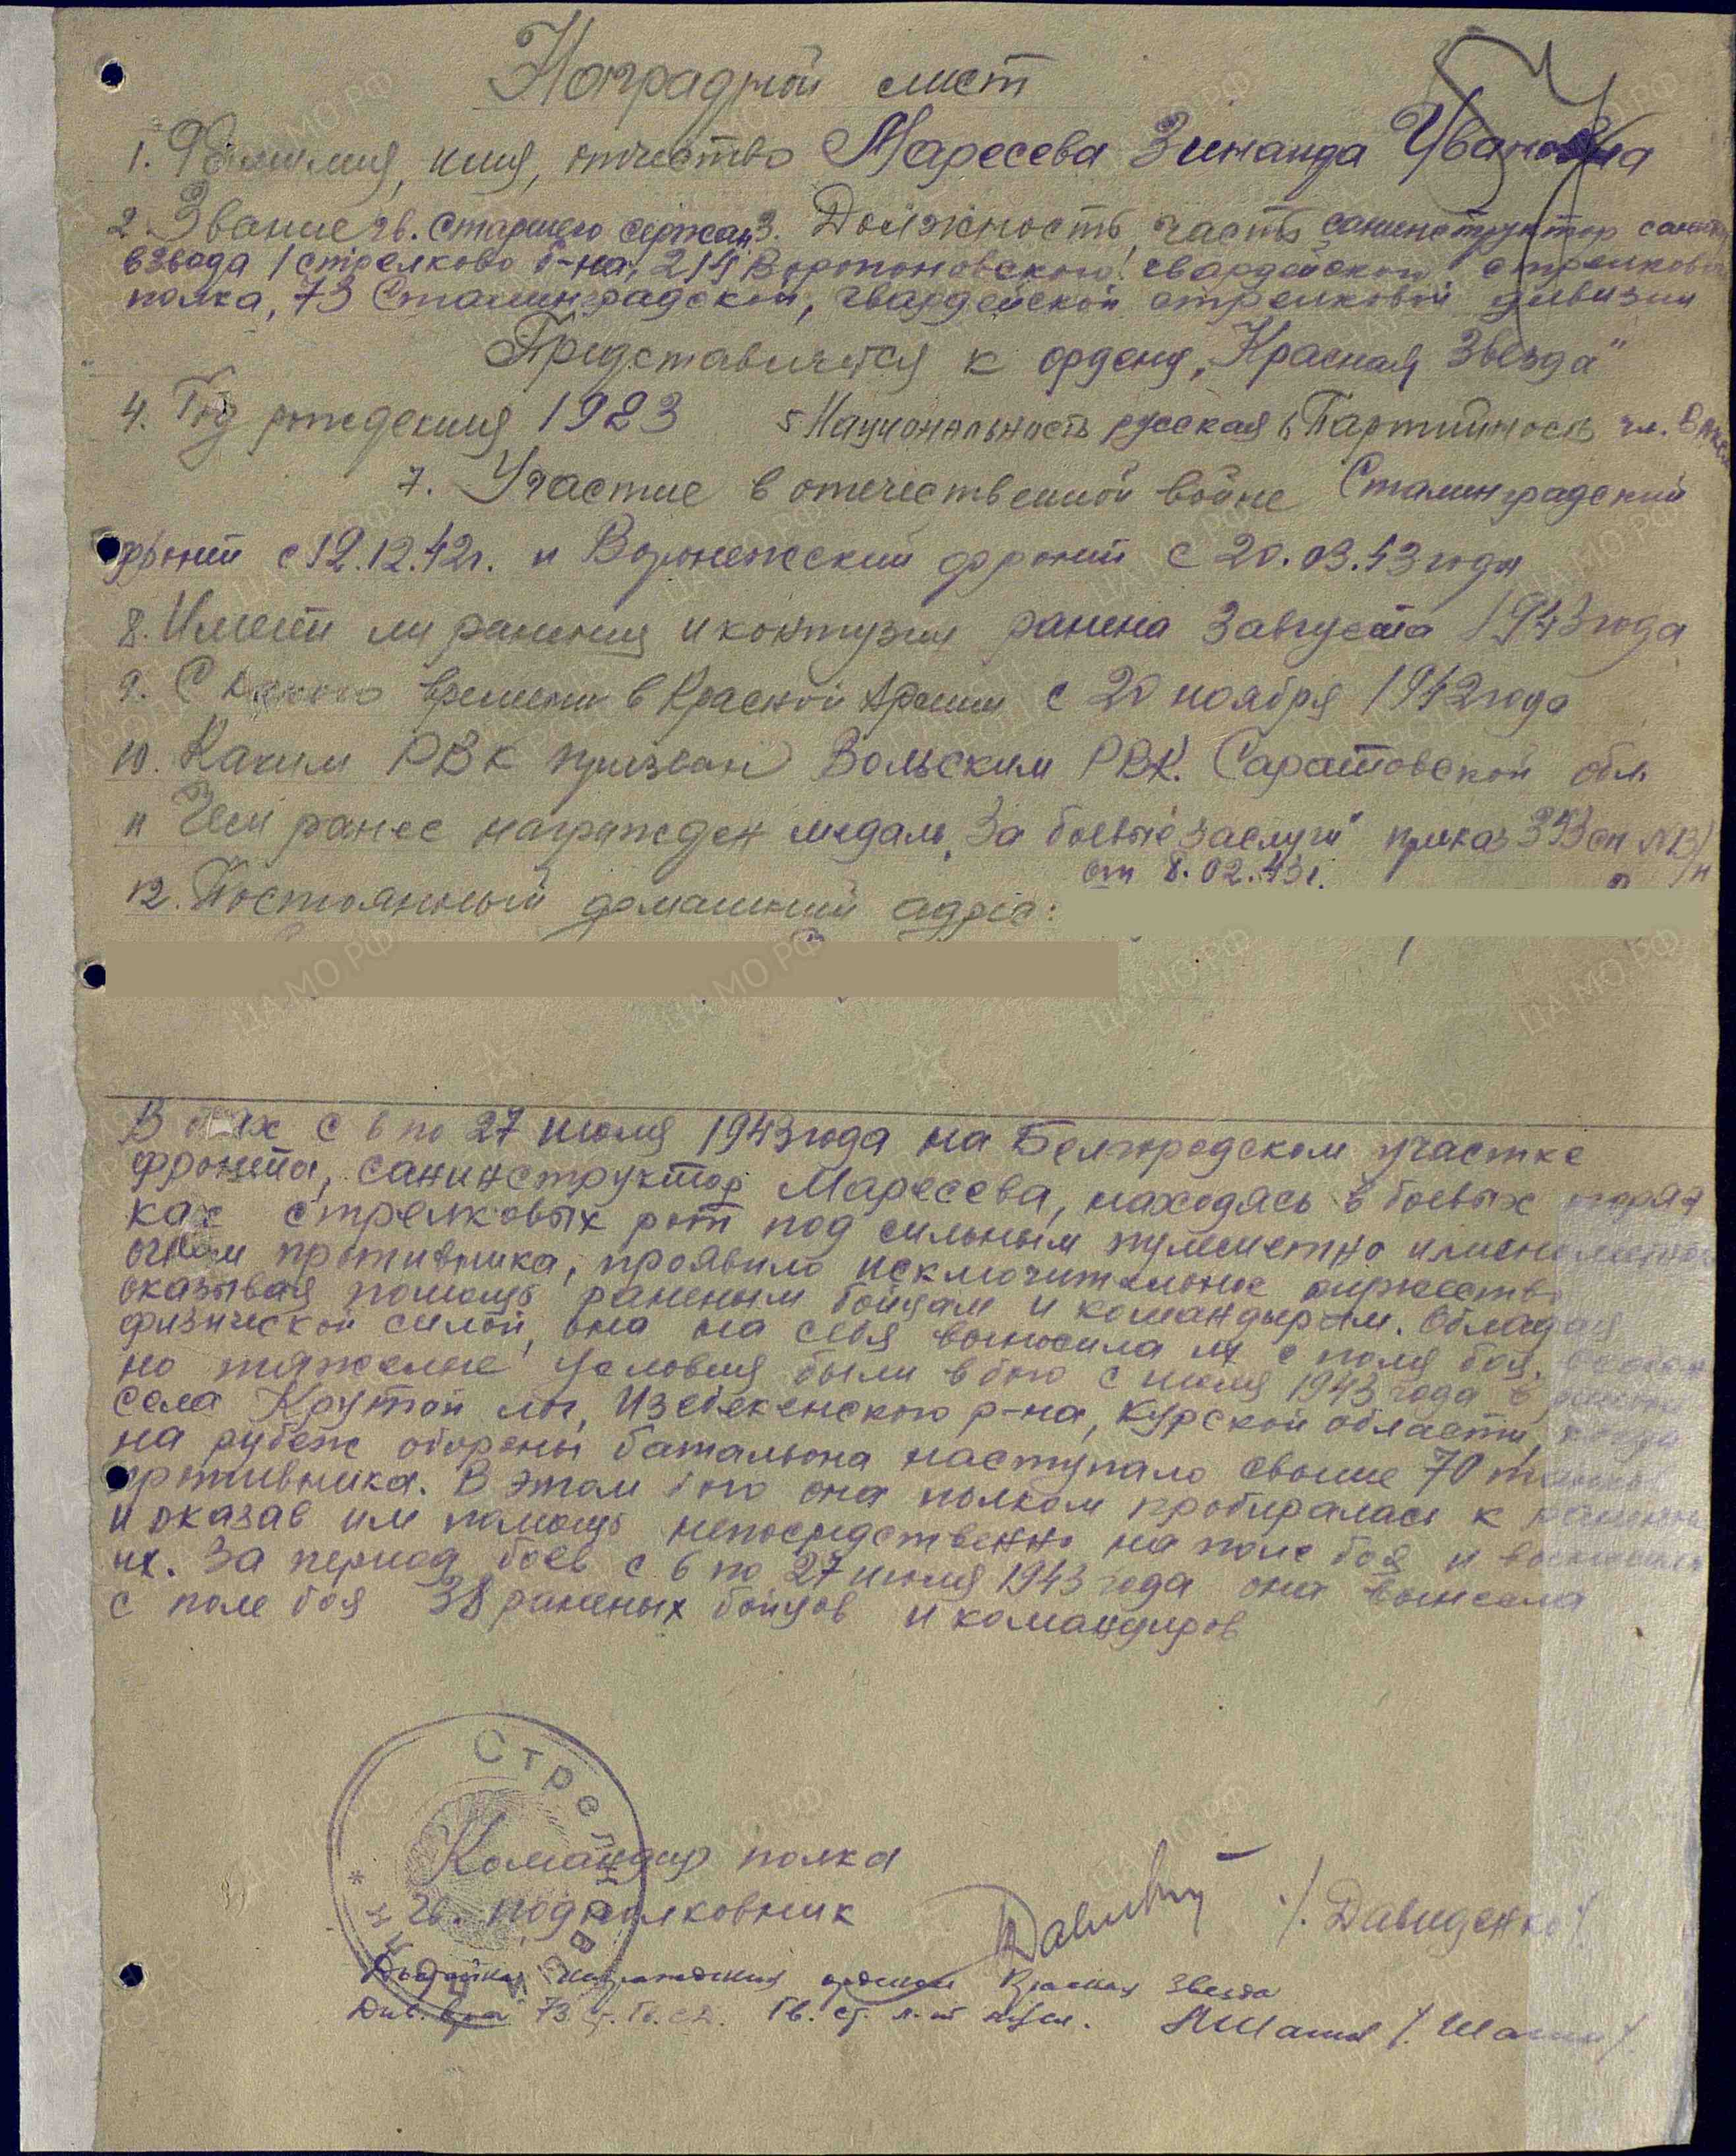 Наградной лист
1. Фамилия, имя, отчество Маресева Зинаида Ивановна
2. Звание гв. Старшего сержан 3. Должность, часть санинструктор
взвода 1 стрелково б-на, 214 Воропоновского гвардейского стрелково
полка, 73 Сталинградской, гвардейской стрелковой дивизии
Представляется к ордену „Красная Звезда"
4. Год рождения 1923 5 Национальность русская 6 Партийность чл.
7. Участие в отечественной войне Сталинградский
фронт с 12.12.42г. и Воронежский фронт с 20.03.43 года
8. Имеет ли ранения и контузии ранена 3 августа 1943 года
9. С какого времени в Красной Армии с 20 ноября 1942 года
10. Каким РВК призван Вольским РВК. Саратовской обл.
11 Чем ранее награжден медаль „За боевые заслуги" приказ 343 сп
от 8.02.43г.
12. Постоянный домашний адрес:
В боях с 6 по 27 июля 1943 года на Белгородском участке
фронта, санинструктор Маресева, находясь в боевых поряд
ках стрелковых рот под сильным пулеметно и минометным
огнем противника, проявило исключительное мужество
оказывая помощь раненым бойцам и командирам. Обладая
физической силой, она на себя выносила их с поля боя.
но тяжелые условия были в бою с июля 1943 года в районе
села Крутой лог, Курской области, когда
на рубеж обороны батальона наступало свыше 70 танков
противника. В этом бою она ползком пробиралась к раненым
и оказав им помощь непосредственно на поле боя и выносила
их. За период боев с 6 по 27 июля 1943 года она вынесла
с поле боя 38 раненых бойцов и командиров
Стрелков
Командир полка
гв. подполковник /. Давиденко /.
Достойна награждения орденом Красная Звезда
Див. врач 73 Гв. ст. л-нт м/сл.